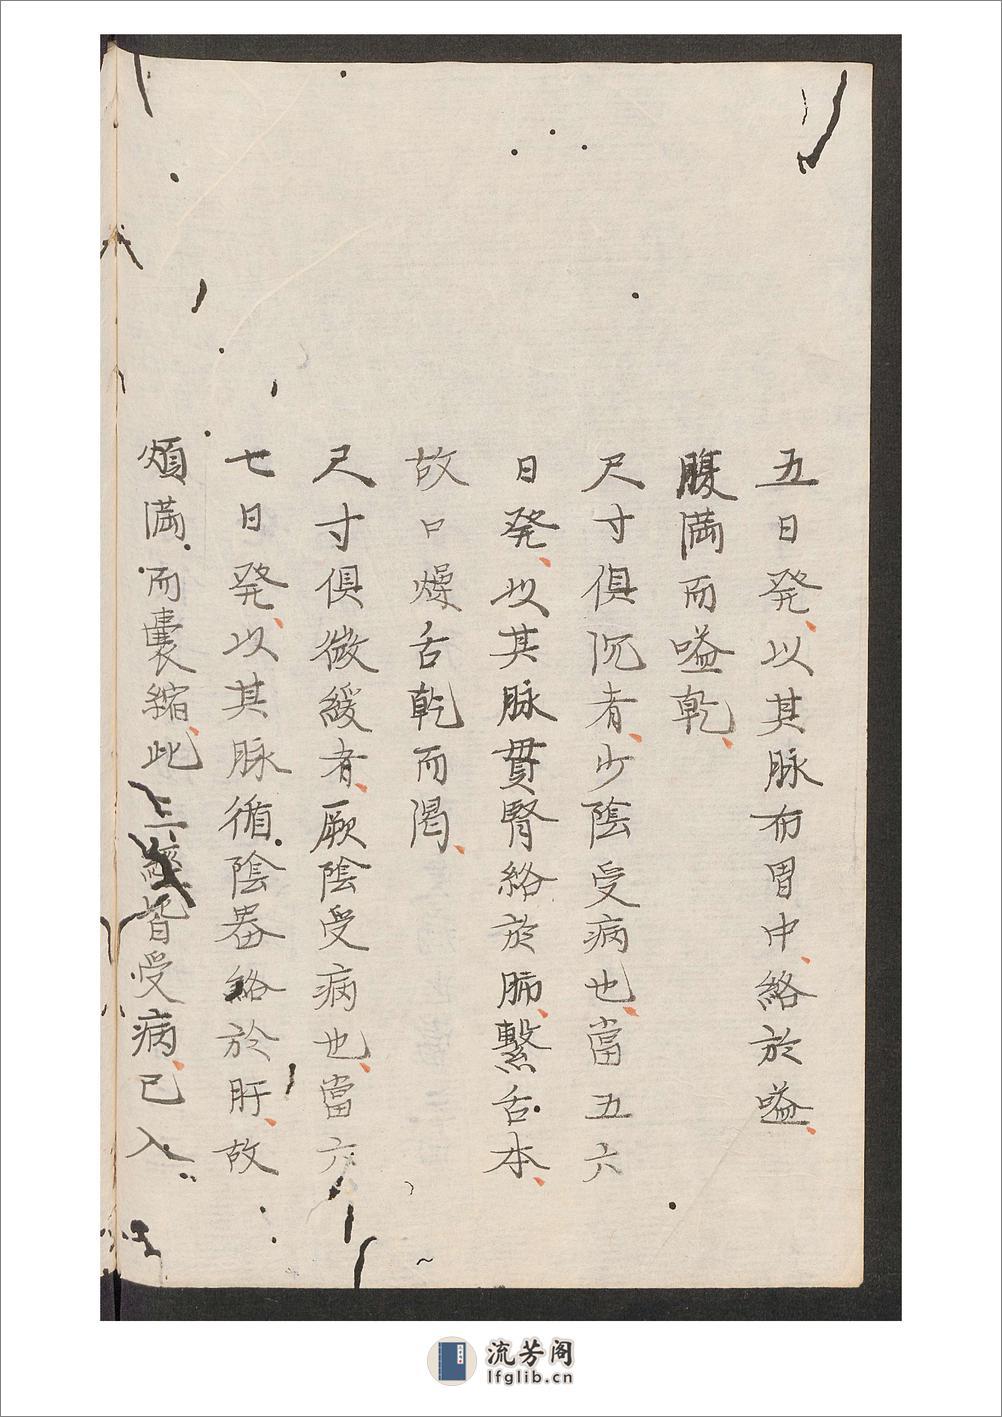 五日発、以其脉布胃中、絡於嗌、
腹満而嗌乾、
尺寸俱沉者、少陰受病也、當五六
日発、以其脉貫腎絡於肺、繫舌本、
故口燥舌乾而渴、
尺寸俱微緩者、厥陰受病也、當六
七日発、以其脉循陰器絡於肝、故
煩満而囊縮、此三經皆受病、已入
流芳阁
lfglib.cn